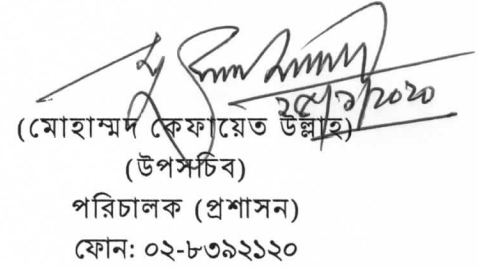 ২৫/১/২০২০
(মোহাম্মদ কেফায়েত উল্লাহ)
(উপসচিব)
পরিচালক (প্রশাসন)
ফোন: ০২-৮৩৯২১২০